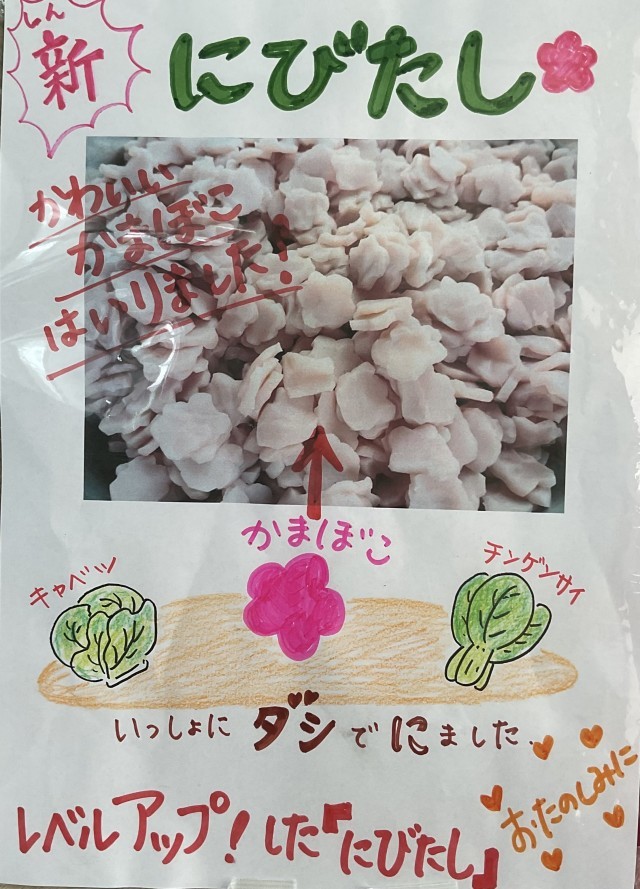 しん
新
にびたし
かわいい
かまぼこ
はいりました!
かまぼこ
キャベツ
チンゲンサイ
いっしょに ダシ で にました.
おたのしみに
レベルアップ!した『にびたし』